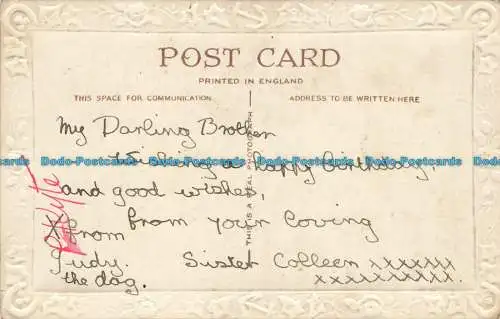 POST CARD
PRINTED IN ENGLAND
THIS SPACE FOR COMMUNICATION
ADDRESS TO BE WRITTEN HERE
THIS IS A REAL PHOTOGRAPH
My Darling Brother
Wishing a happy birthday,
Dodo-Postcards Dodo-Postcards Dodo-Postcards Dodo-Postcards
and good wishes,
from your loving
from
Judy. Sister Colleen xxxxxxx
the dog. xxxxxxxxxxx.